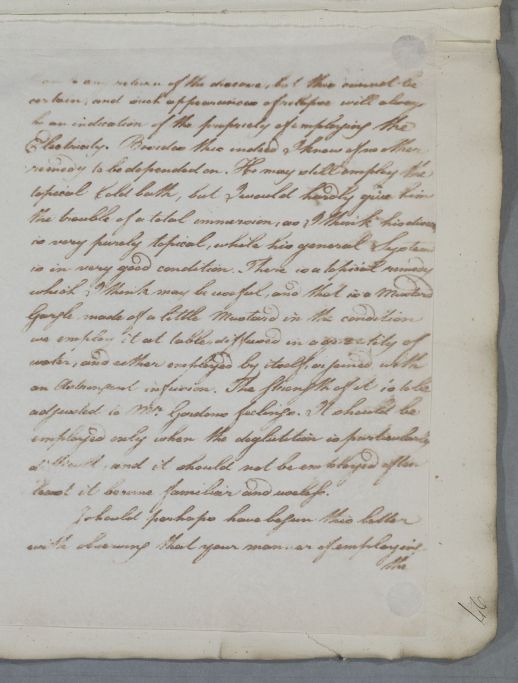 any return of the disease, but this cannot be
certain, and such appearances of relapse will always
be an indication of the propriety of employing the
Electricity. Besides this indeed I know of no other
remedy to be depended on. He may still employ the
topical Cold bath, but I would hardly give him
the trouble of a total immersion, as I think his disease
is very purely topical, while his general System
is in very good condition. There is a topical remedy
which I think may be useful, and that is a Mustard
Gargle made of a little Mustard in the condition
we employ it at table, diffused in a quantity of
water, and either employed by itself, or joined with
an Astringent infusion. The strength of it is to be
adjusted to Mr. Gordons feelings. It should be
employed only when the deglutition is particularly
difficult, and it should not be employed often
least it become familiar and useless.
I should perhaps have begun this letter
with observing that your manner of employing
the
46